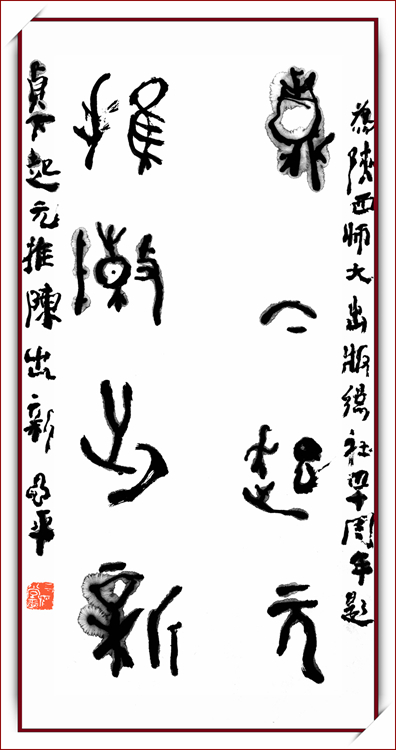 為陝西师大出版總社十周年题
貞下起元
推陳出新
貞下起元推陳出新 平